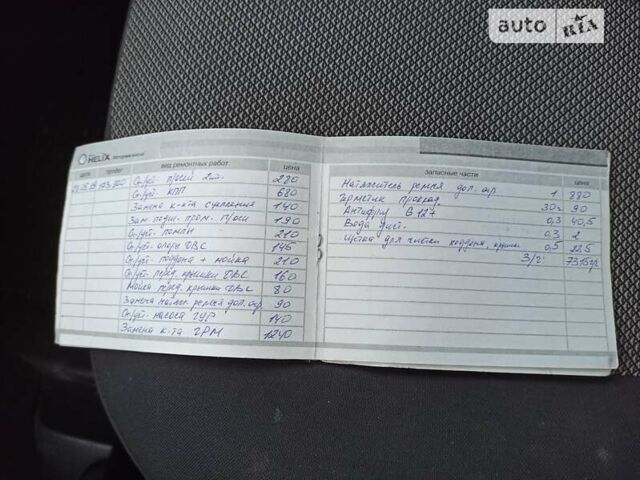 auto RIA
HELIX
дата пробег вид ремонтных работ цена
Сн/уст. п/оси 2шт. 280
Сн/уст. КПП 680
Замена к-кта сцепления 140
Зам. подш. пром. п/оси 190
Сн/уст. помпы 210
Сн/уст. опоры ДВС 145
Сн/уст. поддона + мойка 210
Сн/уст. перед. крышки ДВС 160
Мойка перед. крышки ДВС 80
Замена ремня доп. 90
Сн/уст. насоса ГУР 140
Замена к-та ГРМ 1240
запасные части цена
Натяжитель ремня доп. 1 890
Герметик проклад. 30 90
Антифриз 0,3 40,5
Вода дист. 0,3 2
Щетка для поддона, крышки 0,5 22,5
З/Ч: